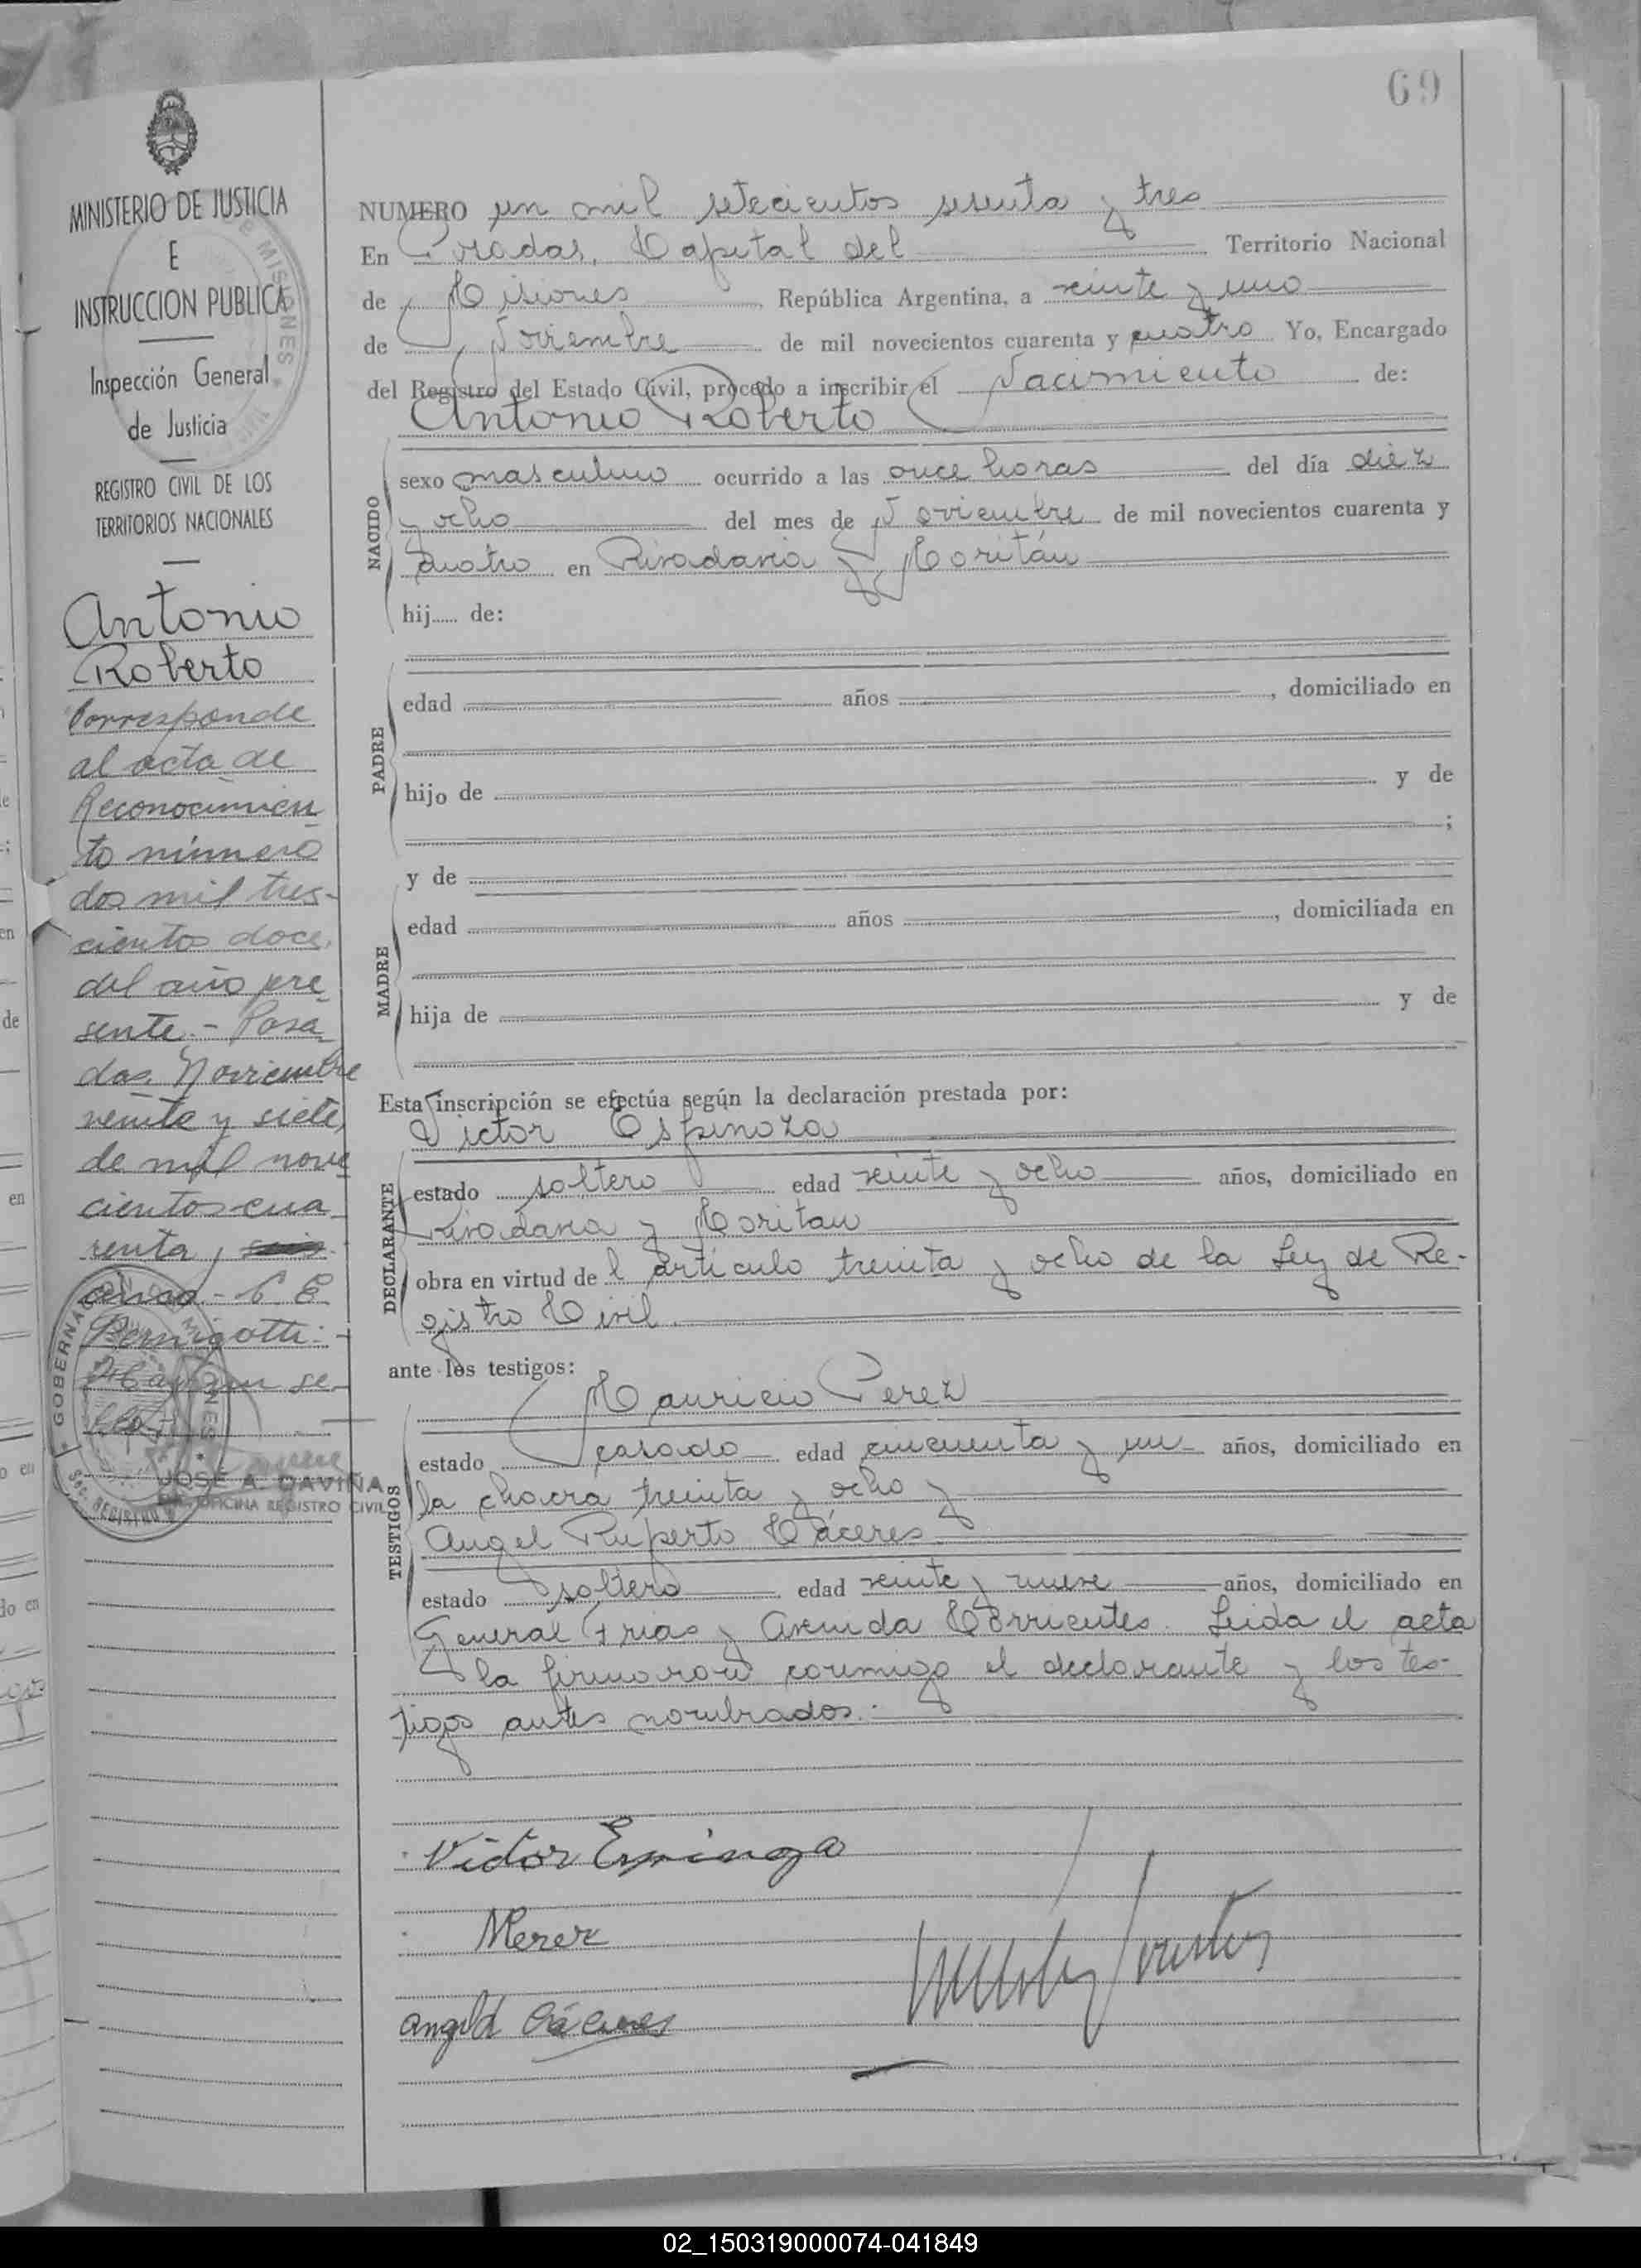 69
MINISTERIO DE JUSTICIA
E
INSTRUCCION PUBLICA
Inspección General
de Justicia
REGISTRO CIVIL DE LOS
TERRITORIOS NACIONALES
Antonio
Roberto
Corresponde
al acta de
Reconocimien
to número
dos mil tres-
cientos doce,
del año pre
sente.- Posa
das, Noviembre
veinte y siete
de mil nove
cientos cua
renta y seis
cinco.- C E
Bernigotti.-
Hay un se
llo.-
JOSÉ A. DAVIÑA
OFICINA REGISTRO CIVIL
NUMERO un mil setecientos sesenta y tres
En Posadas, Capital del Territorio Nacional
de Misiones, República Argentina, a veinte y uno
de Noviembre de mil novecientos cuarenta y cuatro Yo, Encargado
del Registro del Estado Civil, procedo a inscribir el Nacimiento de:
Antonio Roberto
NACIDO
sexo masculino ocurrido a las once horas del día diez
y ocho del mes de Noviembre de mil novecientos cuarenta y
cuatro en Rivadavia y Moritán
hij...... de:
PADRE
edad años, domiciliado en
hijo de y de
;
y de
MADRE
edad años, domiciliada en
hija de y de
Esta inscripción se efectúa según la declaración prestada por:
Victor Espinoza
DECLARANTE
estado soltero edad veinte y ocho años, domiciliado en
Rivadavia y Moritan
obra en virtud de l artículo treinta y ocho de la Ley de Re-
gistro Civil.
ante los testigos:
Mauricio Perez
TESTIGOS
estado casado edad cincuenta y un años, domiciliado en
la chacra treinta y ocho y
Angel Ruperto Cáceres
estado soltero edad veinte y nueve años, domiciliado en
General Frias y Avenida Corrientes. Leida el acta
la firmaron conmigo el declarante y los tes-
tigos antes nombrados.-
Victor Espinoza
MPerez
Angel R Cáceres
02_150319000074-041849